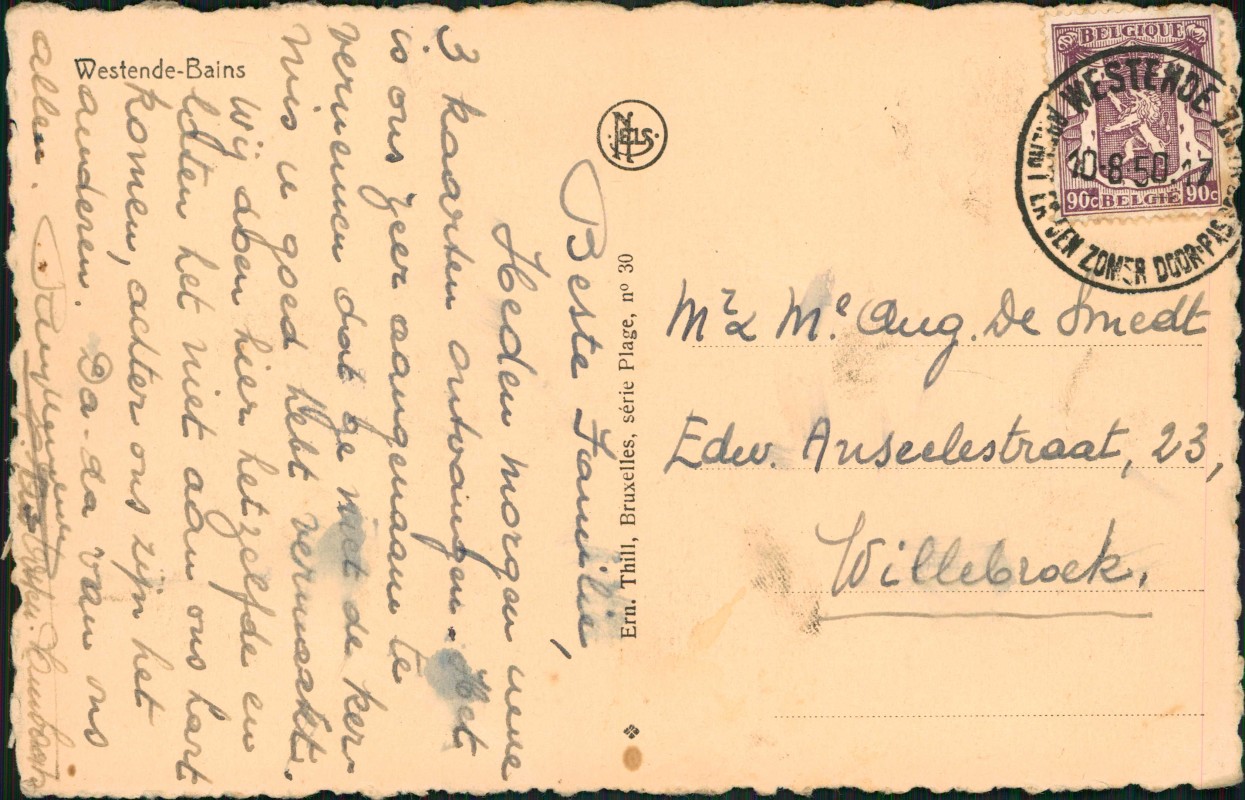 Westende-Bains
Beste Familie,
Heden morgen uwe
3 kaarten ontvangen. Het
is ons zeer aangenaam te
vernemen dat ge met de ker-
mis u goed hebt vermaakt.
Wij doen hier hetzelfde en
laten het niet aan ons hart
komen, achter ons zijn het
anderen. Da-da van ons
allen.
NELS
Ern. Thill, Bruxelles, série Plage, nº 30
BELGIQUE
90c BELGIË 90c
WESTENDE
10-8 50. 17
EN ZOMER DOOR
Mr & Me Aug. De Smedt
Edw. Anseelestraat, 23,
Willebroek.